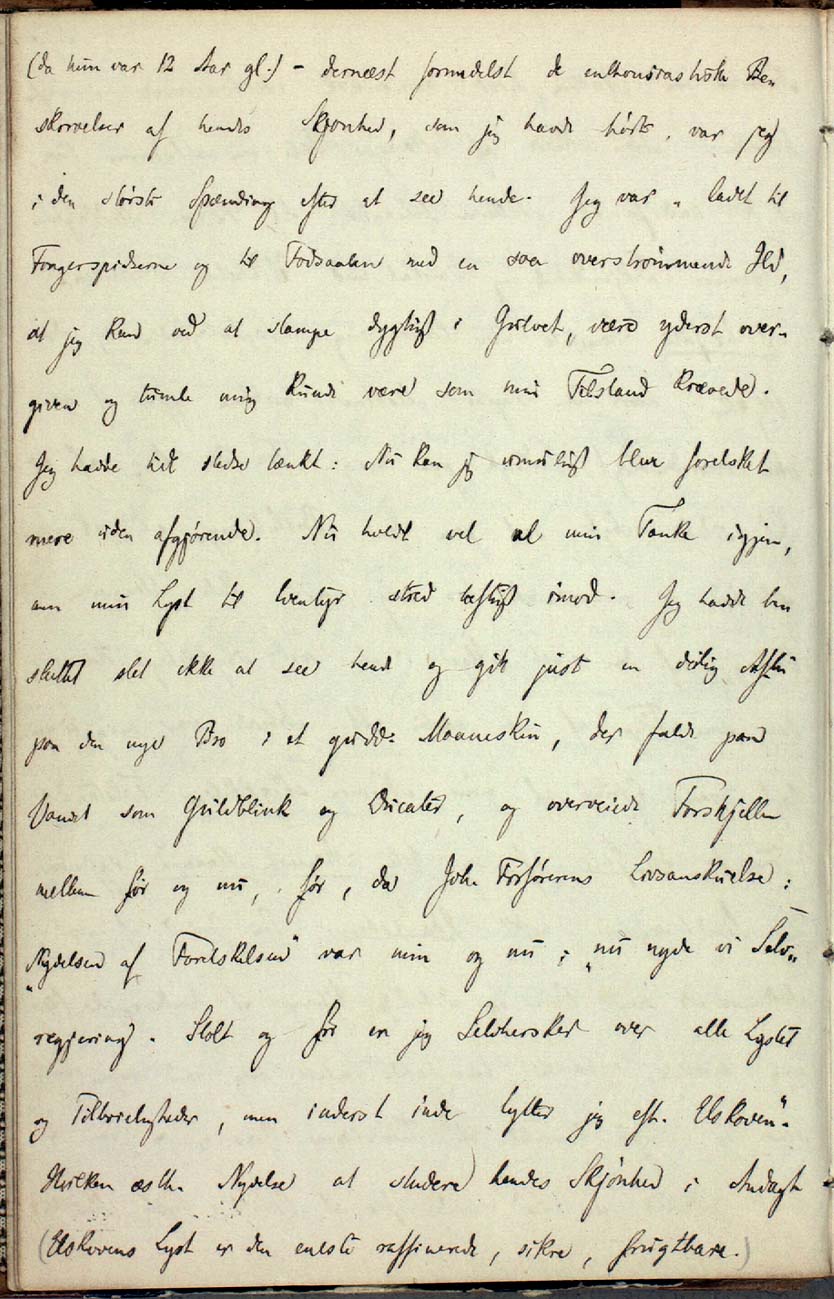 (da hun var 12 Aar gl.) – dernæst formedelst de enthousiastiske Be=
skrivelser af hendes Skjønhed, som jeg havde hørt, var jeg
i den største Spænding efter at see hende. Jeg var ladet til
Fingerspidserne og til Fodsaalen med en saa overstrømmende Ild,
at jeg kun ved at stampe dygtigt i Gulvet, være yderst over=
given og tumle mig kunde være som min Tilstand krævede.
Jeg havde tidt stedse tænkt: Nu kan jeg umuligt blive forelsket
mere uden afgjørende. Nu holdt vel al min Tanke igjen,
men min Lyst til Eventyr stred heftigt imod. Jeg havde be=
sluttet slet ikke at see hende og gik just en deilig Aften
paa den nye Bro i et gudd: Maaneskin, der faldt paa
Vandet som Guldblink og Ducater, og overveiede Forskjellen
mellem før og nu, før, da Joh. Forførerens Livsanskuelse:
"Nydelsen af Forelskelsen" var min og nu: "nu nyde vi Selv=
regjering. Stolt og fri er jeg Selvhersker over alle Lyster
og Tilbøieligheder, men inderst inde lytter jeg eft. Elskoven".
Hvilken æsth. Nydelse at studere hendes Skjønhed i Andagt
(Elskovens Lyst er den eneste raffinerede, sikre, frugtbare.)